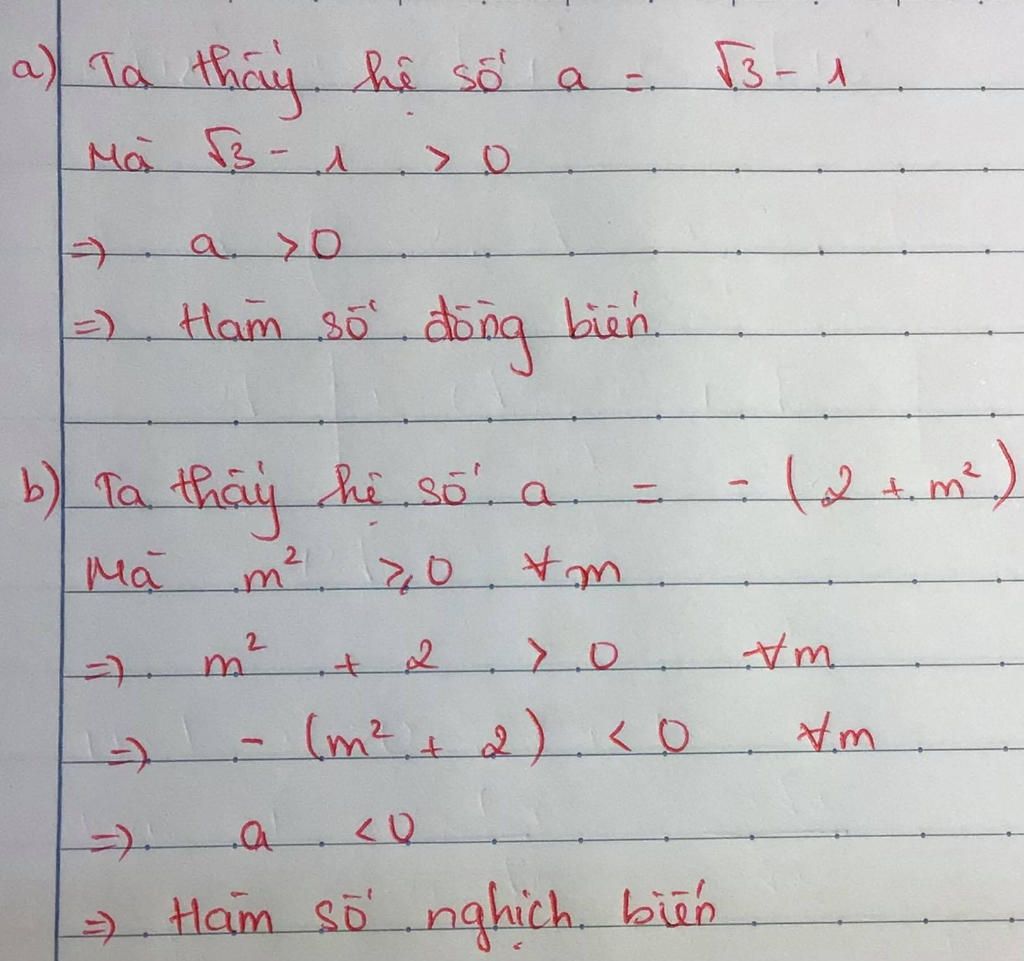 a) Ta thấy hệ số a = √3 - 1
Mà √3 - 1 > 0
=> a > 0
=> Hàm số đồng biến
b) Ta thấy hệ số a = - (2 + m²)
Mà m² ≥ 0 ∀m
=> m² + 2 > 0 ∀m
=> - (m² + 2) < 0 ∀m
=> a < 0
=> Hàm số nghịch biến